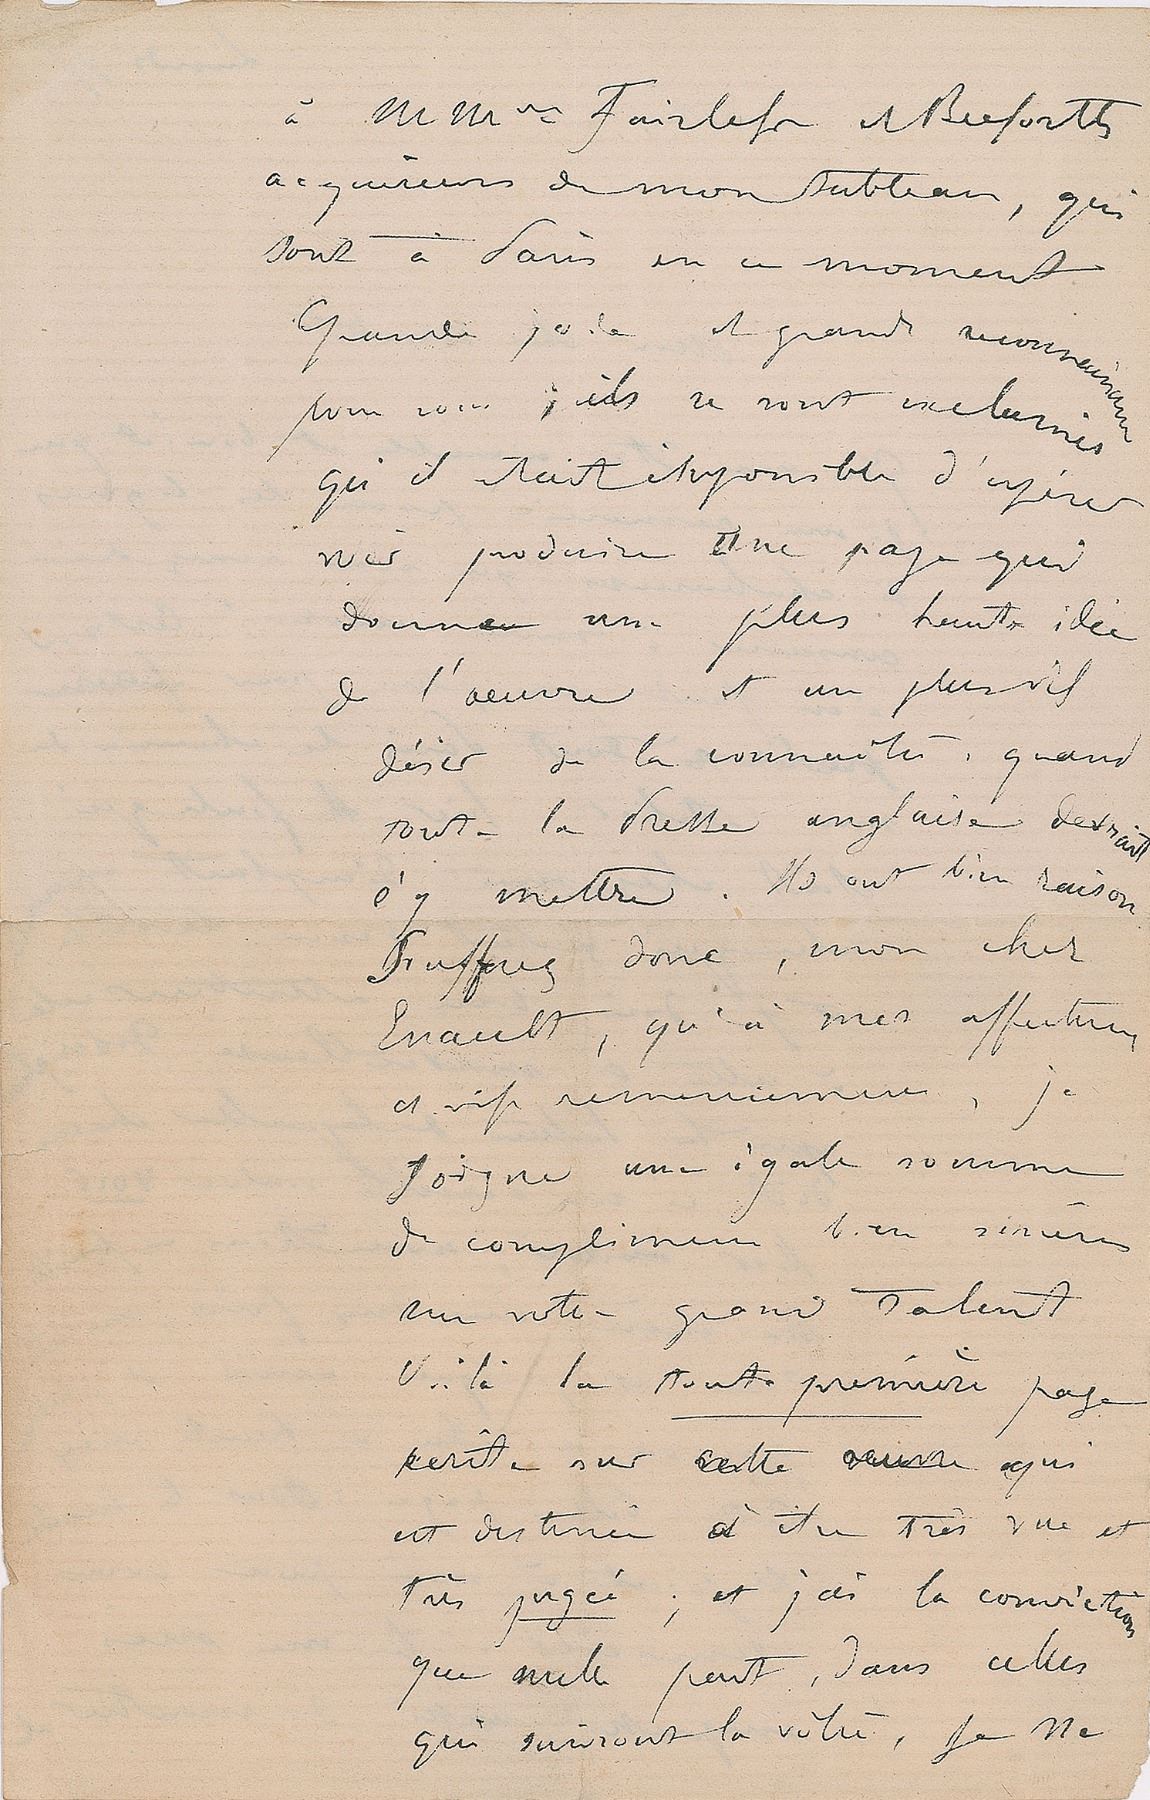 à MM rs Fairless et Beeforth
acquéreurs de mon tableau, qui
sont à Paris en ce moment
Grande joie et grande reconnaissance
pour vous ; ils se sont exclamés
qu'il était impossible d'espérer
voir produire une page qui
donne une plus haute idée
de l'oeuvre et un plus vif
désir de la connaître, quand
toute la Presse anglaise devrait
s'y mettre. Ils ont bien raison
Souffrez donc, mon cher
Enault, qu'à mes affectueux
et vifs remerciements, je
joigne une égale somme
de compliments bien sincères
sur votre grand talent
Voilà la toute première page
écrite sur cette oeuvre qui
est destinée à être très vue et
très jugée ; et j'ai la conviction
que nulle part, dans celles
qui suivront la vôtre, je ne